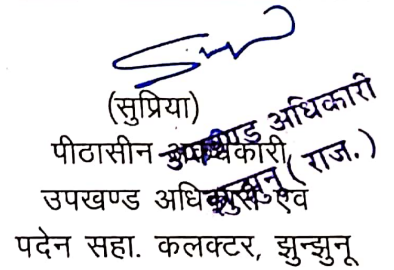 (सुप्रिया)
पीठासीन अधिकारी,
उपखण्ड अधिकारी एवं
पदेन सहा. कलक्टर, झुन्झुनू
उपखण्ड अधिकारी
झुन्झुनू (राज.)